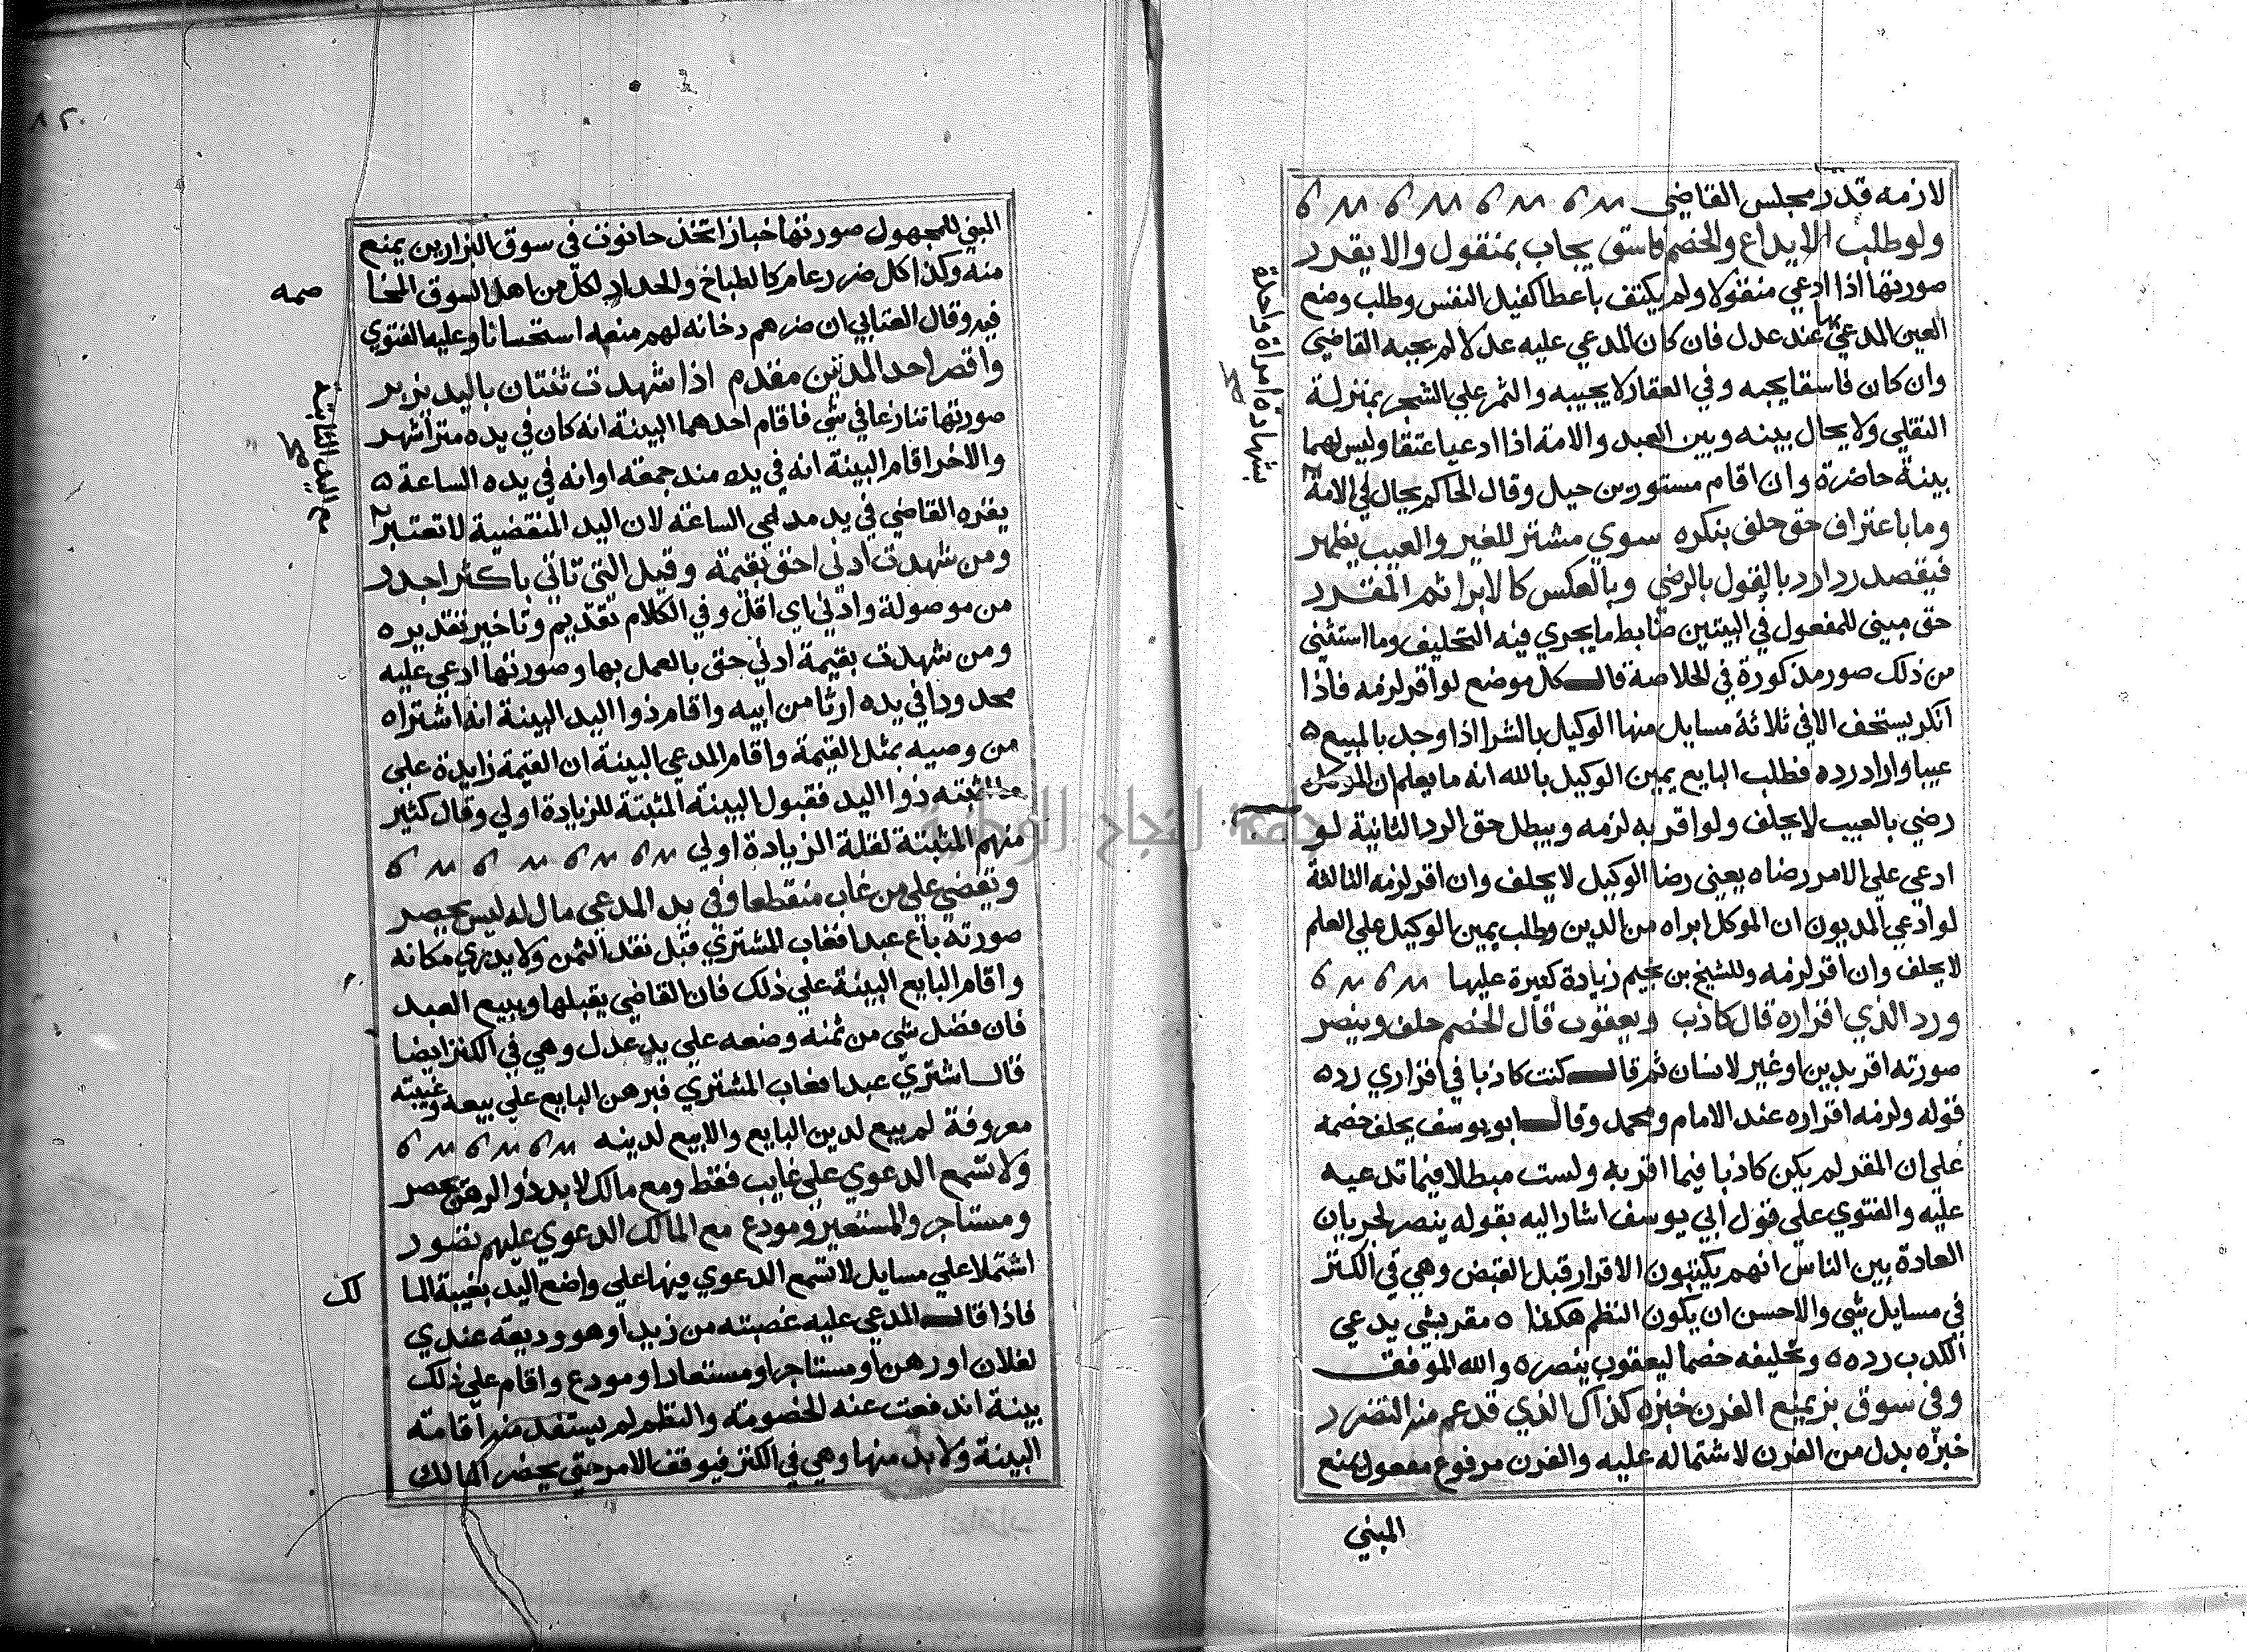 لازمه قدر مجلس القاضي
ولو طلب الايداع والخصم فاسق يجاب بمنقول والا يقدر
صورتها اذا ادعي منقولا ولم يكتف باعطا كفيل النفس وطلب وضع
العين المدعي بها عند عدل فان كان المدعي عليه عدلا لم يجبه القاضي
وان كان فاسقا يجبه وفي العقار لا يجيبه والثمر علي الشجر بمنزلة
النقلي ولا يحال بينه وبين العبد والامة اذا ادعيا عتقا وليس لهما
بينة حاضرة وان اقام مستورين حيل وقال الحاكم يحال في الامة
وما باعتراف حق حلف بنكره سوي مشتر للغير والعيب يظهر
فيقصد ردا رد بالقول بالرضي وبالعكس كالابرا ثم المقرد
حق مبني للمفعول في البيتين ضابط ما يجري فيه التحليف وما استثني
من ذلك صور مذكورة في الخلاصة قال كل موضع لو اقر لزمه فاذا
انكر يستحف الا في ثلاثة مسايل منها الوكيل بالشرا اذا وجد بالمبيع
عيبا واراد رده فطلب البايع يمين الوكيل بالله انه ما يعلم ان الموكل
رضي بالعيب لا يحلف ولو اقر به لزمه ويبطل حق الرد الثانية لو
ادعي علي الامر رضاه يعني رضا الوكيل لا يحلف وان اقر لزمه الثالثة
لو ادعي المديون ان الموكل ابراه من الدين وطلب يمين الوكيل علي العلم
لا يحلف وان اقر لزمه وللشيخ بن نجيم زيادة كثيرة عليها
ورد الذي اقراره قال كاذب ويعقوب قال الخصم حلف وينصر
صورته اقر بدين او غير لانسان ثم قال كنت كاذبا في اقراري رده
قوله ولزمه اقراره عند الامام ومحمد وقال ابو يوسف يحلف خصمه
علي ان المقر لم يكن كاذبا فيما اقر به ولست مبطلا فيما تدعيه
عليه والفتوي علي قول ابي يوسف اشار اليه بقوله ينصر لجريان
العادة بين الناس انهم يكتبون الاقرار قبل القبض وهي في الكنز
في مسايل شي والاحسن ان يكون النظم هكذا ه مقر بشي يدعي
الكدب رده ه وتحليفه خصما ليعقوب ينصره والله الموفق
وفي سوق بز يمنع الفرن خبزه كذاك الذي قد عم منه التضرر
خبزه بدل من الفرن لاشتماله عليه والفرن مرفوع مفعول يمنع
المبني
بشهادة امراة واحدة
المبني للمجهول صورتها خباز اتخذ حانوت في سوق البزازين يمنع
منه وكذا كل ضرر عام كالطباخ والحداد لكل من اهل السوق المخا
صمه
فيه وقال العتابي ان ضرهم دخانه لهم منعه استحسانا وعليه الفتوي
واقصر احد المدتين مقدم اذا شهدت ثنتان باليد يزبر
صورتها تنازعا في شي فاقام احدهما البينة انه كان في يده منذ اشهر
والاخر اقام البينة انه في يده منذ جمعة او انه في يده الساعة
يقره القاضي في يد مدعي الساعة لان اليد المنقضية لا تعتبر
ومن شهدت ادني احق بقيمة وقيل التي تاتي باكثر اجدر
من موصولة وادني اي اقل وفي الكلام تقديم وتاخير تقديره
ومن شهدت بقيمة ادني حق بالعمل بها وصورتها ادعي عليه
محدودا في يده ارثا من ابيه واقام ذوا اليد البينة انه اشتراه
من وصيه بمثل القيمة واقام المدعي البينة ان القيمة زايدة علي
ما اثبته ذوا اليد فقبول البينة المثبتة للزيادة اولي وقال كثير
منهم المثبتة لقلة الزيادة اولي
وتقضي علي من غاب منقطعا وفي يد المدعي مال له ليس يحصر
صورته باع عبدا فغاب المشتري قبل نقد الثمن ولا يدري مكانه
واقام البايع البينة علي ذلك فان القاضي يقبلها ويبيع العبد
فان فضل شي من ثمنه وضعه علي يد عدل وهي في الكنز ايضا
قال اشتري عبدا فغاب المشتري فبرهن البايع علي بيعه وغيبته
معروفة لم يبع لدين البايع والا بيع لدينه
ولا تسمع الدعوي علي غايب فقط ومع مالك لا بد ذو الرهن يحصر
ومستاجر والمستعير ومودع مع المالك الدعوي عليهم تصور
اشتملا علي مسايل لا تسمع الدعوي فيها علي واضع اليد بغيبة الما
لك
فاذا قال المدعي عليه غصبته من زيد او هو وديعة عندي
لفلان او رهن او مستاجر او مستعار او مودع واقام علي ذلك
بينة اندفعت عنه الخصومة والنظم لم يستفد منه اقامة
البينة ولا بد منها وهي في الكنز فيوقف الامر حتي يحضر المالك
جامعة النجاح الوطنية